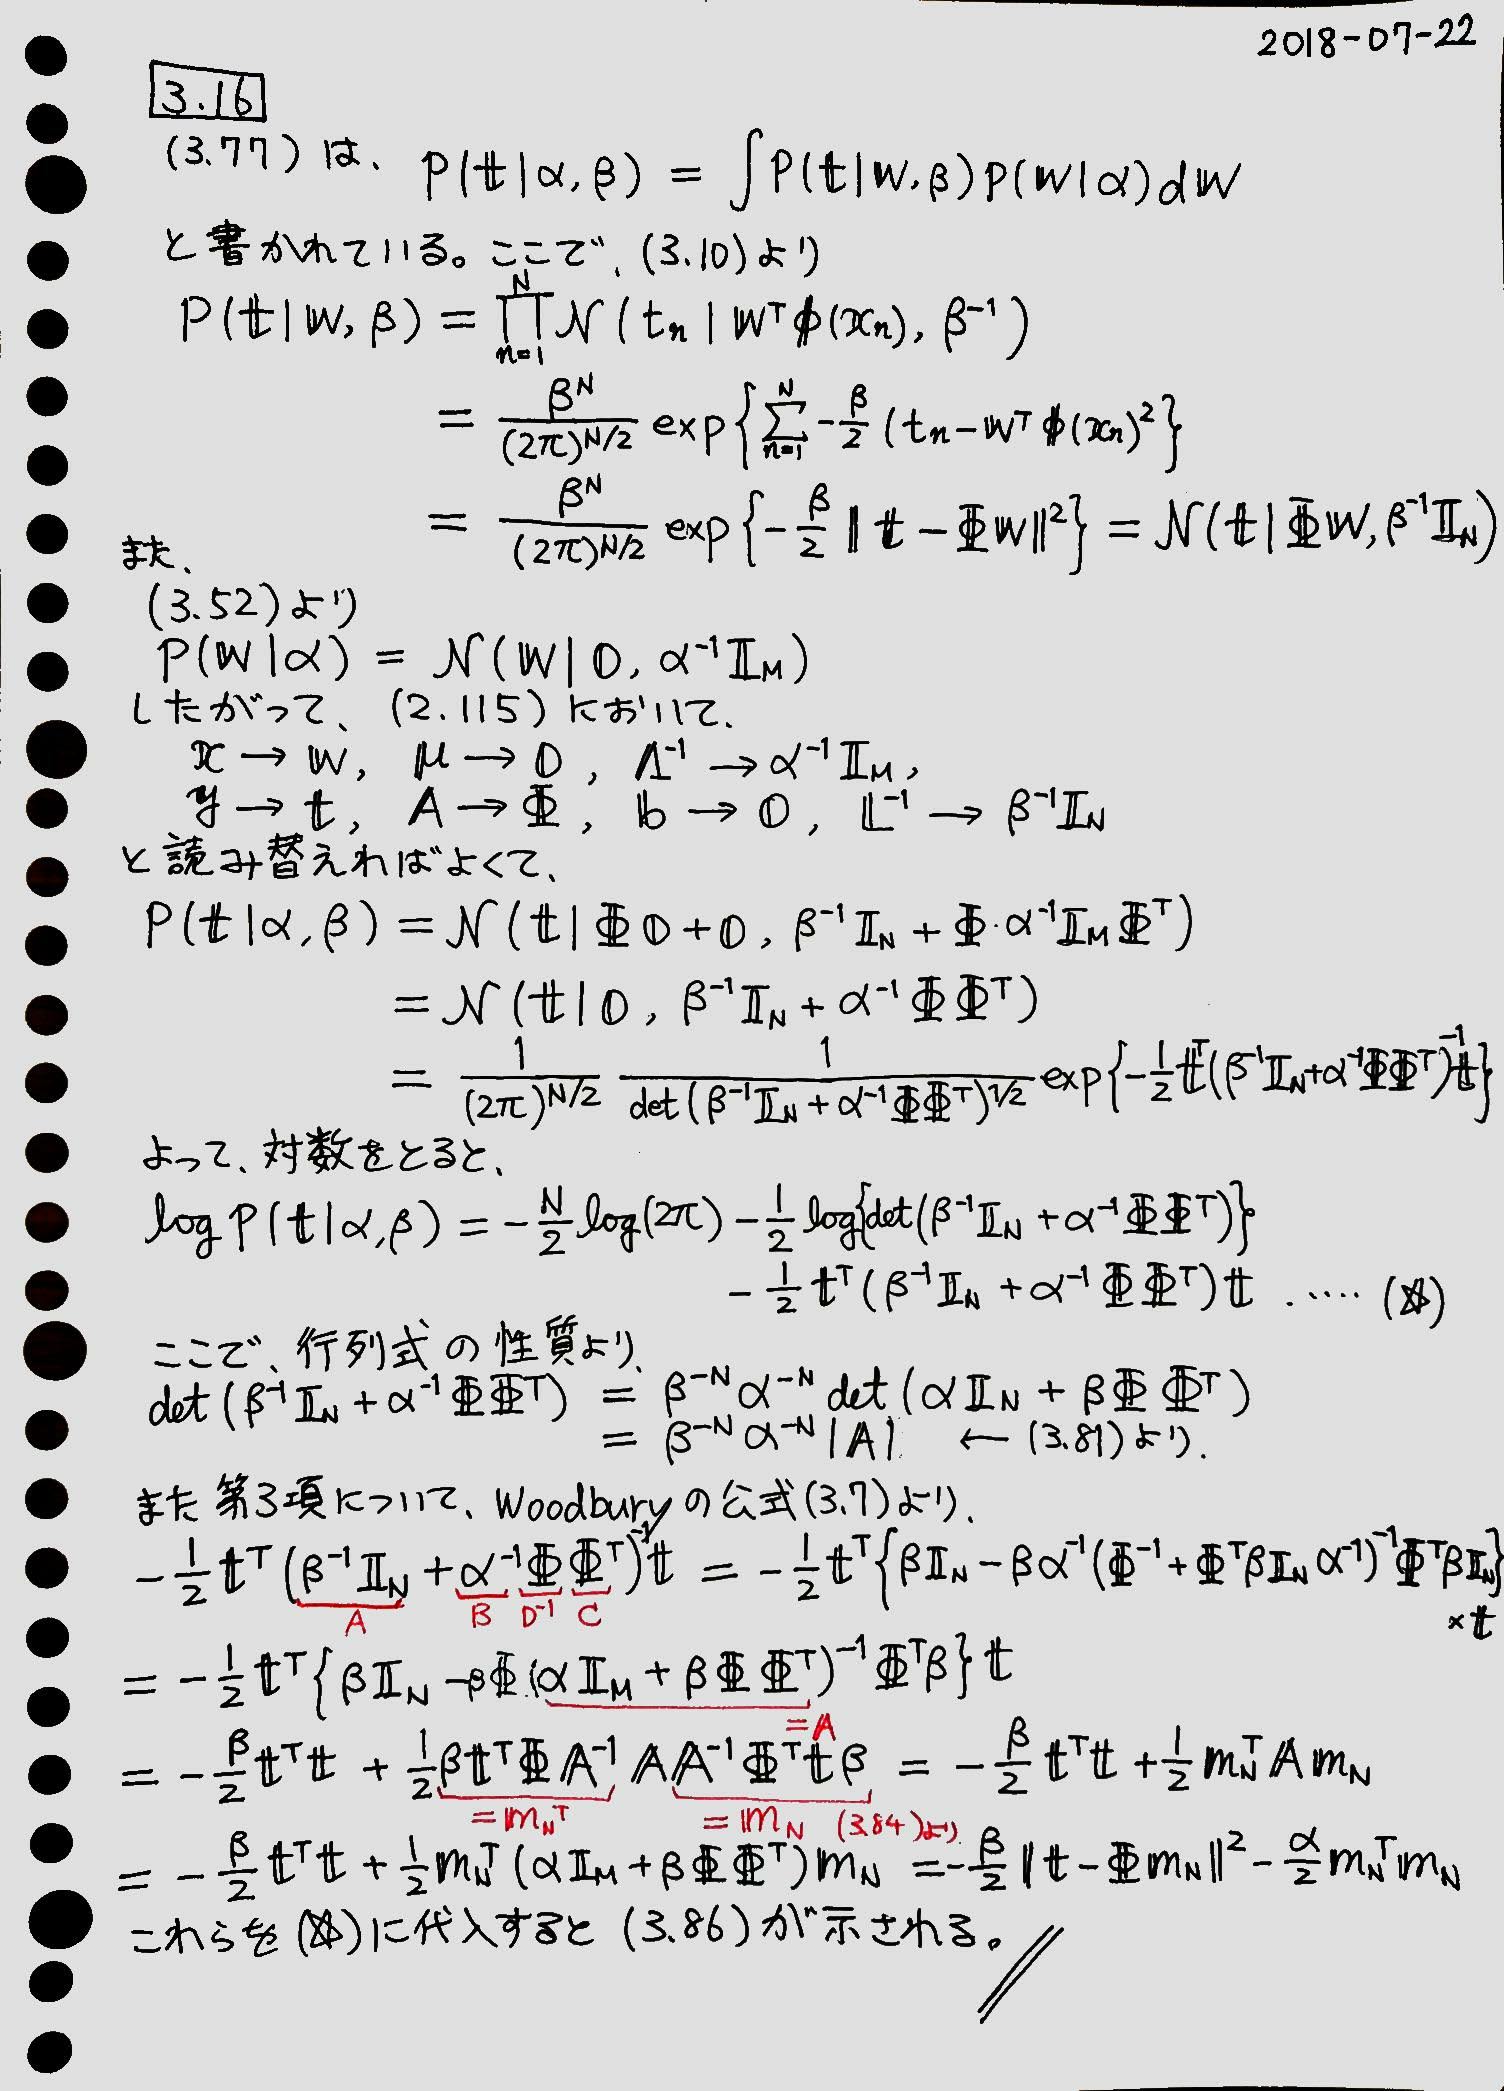 2018-07-22
3.16
(3.77) は、 P(𝕥|α,β) = ∫P(𝕥|𝕨,β)P(𝕨|α)d𝕨
と書かれている。ここで、(3.10)より
P(𝕥|𝕨,β) = ∏_{n=1}^{N} 𝒩(t_n|𝕨^Tφ(x_n), β^{-1})
= β^N/(2π)^{N/2} exp{∑_{n=1}^{N} -β/2 (t_n-𝕨^Tφ(x_n)^2}
= β^N/(2π)^{N/2} exp{-β/2 ‖𝕥-Φ𝕨‖^2} = 𝒩(𝕥|Φ𝕨, β^{-1}𝕀_N)
また、
(3.52)より
P(𝕨|α) = 𝒩(𝕨|𝟘, α^{-1}𝕀_M)
したがって、(2.115)において、
x → 𝕨, μ → 𝟘, Λ^{-1} → α^{-1}𝕀_M,
y → 𝕥, A → Φ, 𝕓 → 𝟘, 𝕃^{-1} → β^{-1}𝕀_N
と読み替えればよくて、
P(𝕥|α,β) = 𝒩(𝕥|Φ𝟘+𝟘, β^{-1}𝕀_N + Φ·α^{-1}𝕀_MΦ^T)
= 𝒩(𝕥|𝟘, β^{-1}𝕀_N + α^{-1}ΦΦ^T)
= 1/(2π)^{N/2} 1/det(β^{-1}𝕀_N + α^{-1}ΦΦ^T)^{1/2} exp{-1/2 𝕥^T(β^{-1}𝕀_N+α^{-1}ΦΦ^T)^{-1}𝕥}
よって、対数をとると、
log P(𝕥|α,β) = -N/2 log(2π) - 1/2 log{det(β^{-1}𝕀_N + α^{-1}ΦΦ^T)}
- 1/2 𝕥^T(β^{-1}𝕀_N + α^{-1}ΦΦ^T)𝕥 ..... (☆)
ここで、行列式の性質より、
det(β^{-1}𝕀_N + α^{-1}ΦΦ^T) = β^{-N}α^{-N} det(α𝕀_N + βΦΦ^T)
= β^{-N}α^{-N}|𝔸| ← (3.81)より.
また第3項について、Woodburyの公式(3.7)より、
-1/2 𝕥^T(β^{-1}𝕀_N + α^{-1}ΦΦ^T)^{-1}𝕥 = -1/2 𝕥^T{β𝕀_N - βα^{-1}(Φ^{-1} + Φ^Tβ𝕀_Nα^{-1})^{-1}Φ^Tβ𝕀_N}
A B D^{-1} C ×𝕥
= -1/2 𝕥^T{β𝕀_N - βΦ(α𝕀_M + βΦΦ^T)^{-1}Φ^Tβ}𝕥
=𝔸
= -β/2 𝕥^T𝕥 + 1/2 β𝕥^TΦ𝔸^{-1}𝔸𝔸^{-1}Φ^T𝕥β = -β/2 𝕥^T𝕥 + 1/2 𝕞_N^T𝔸𝕞_N
=𝕞_N^T =𝕞_N (3.84)より
= -β/2 𝕥^T𝕥 + 1/2 𝕞_N^T(α𝕀_M + βΦΦ^T)𝕞_N = -β/2 ‖𝕥-Φ𝕞_N‖^2 - α/2 𝕞_N^T𝕞_N
これらを(☆)に代入すると(3.86)が示される。